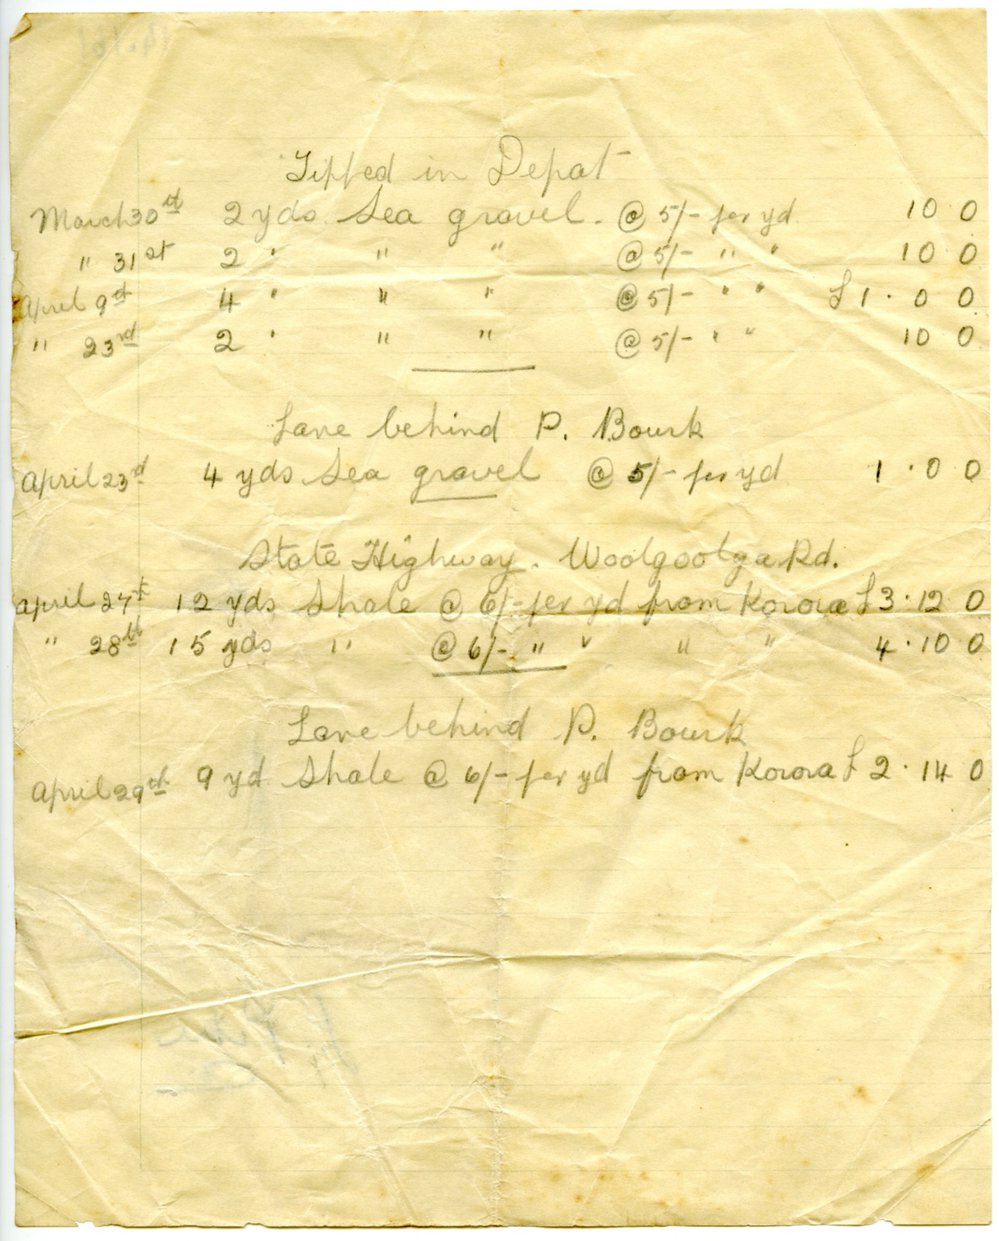 Tipped in Depot
March 30st 2 yds. Sea gravel. @ 5/- per yd 10 0
" 31st 2 " " " @ 5/- " " 10 0
April 9st 4 " " " @ 5/- " " £1 . 0 0
" 23rd 2 " " " @ 5/- " " 10 0
Lane behind P. Bourk
April 23rd 4 yds Sea gravel @ 5/- per yd 1 . 0 0
State Highway. Woolgoolga Rd.
April 27t 12 yds Shale @ 6/- per yd from Korora £3 . 12 0
" 28th 15 yds " @ 6/- " " " " 4 . 10 0
Lane behind P. Bourk
April 29st 9 yd Shale @ 6/- per yd from Korora £2 . 14 0